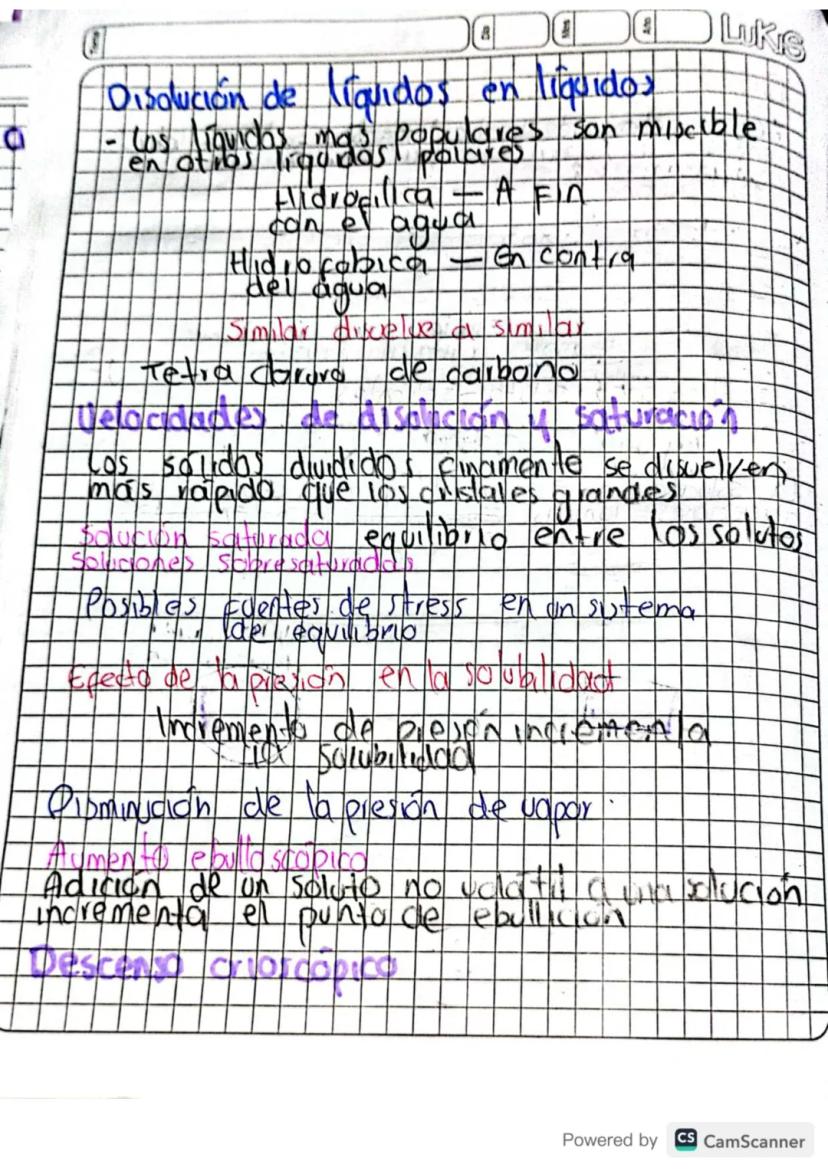 LUKIS
Disolución de líquidos en líquidos
- Los líquidos mas populares son miscible
en otros líquidos polares
Hidrofilica — A Fin
con el agua
Hidrofobica — En contra
del agua
Similar disuelve a similar
Tetra cloruro de carbono
Velocidades de disolución y saturación
Los sólidos divididos finamente se disuelven
más rápido que los cristales grandes
Solución saturada equilibrio entre los solutos
Soluciones sobresaturadas
Posibles fuentes de stress en un sistema
del equilibrio
Efecto de la presión en la solubilidad
Incremento de presión incrementa
la solubilidad
Disminución de la presión de vapor.
Aumento ebulloscópico
Adición de un soluto no volatil a una solución
incrementa el punto de ebullición
Descenso crioscópico
Powered by CS CamScanner